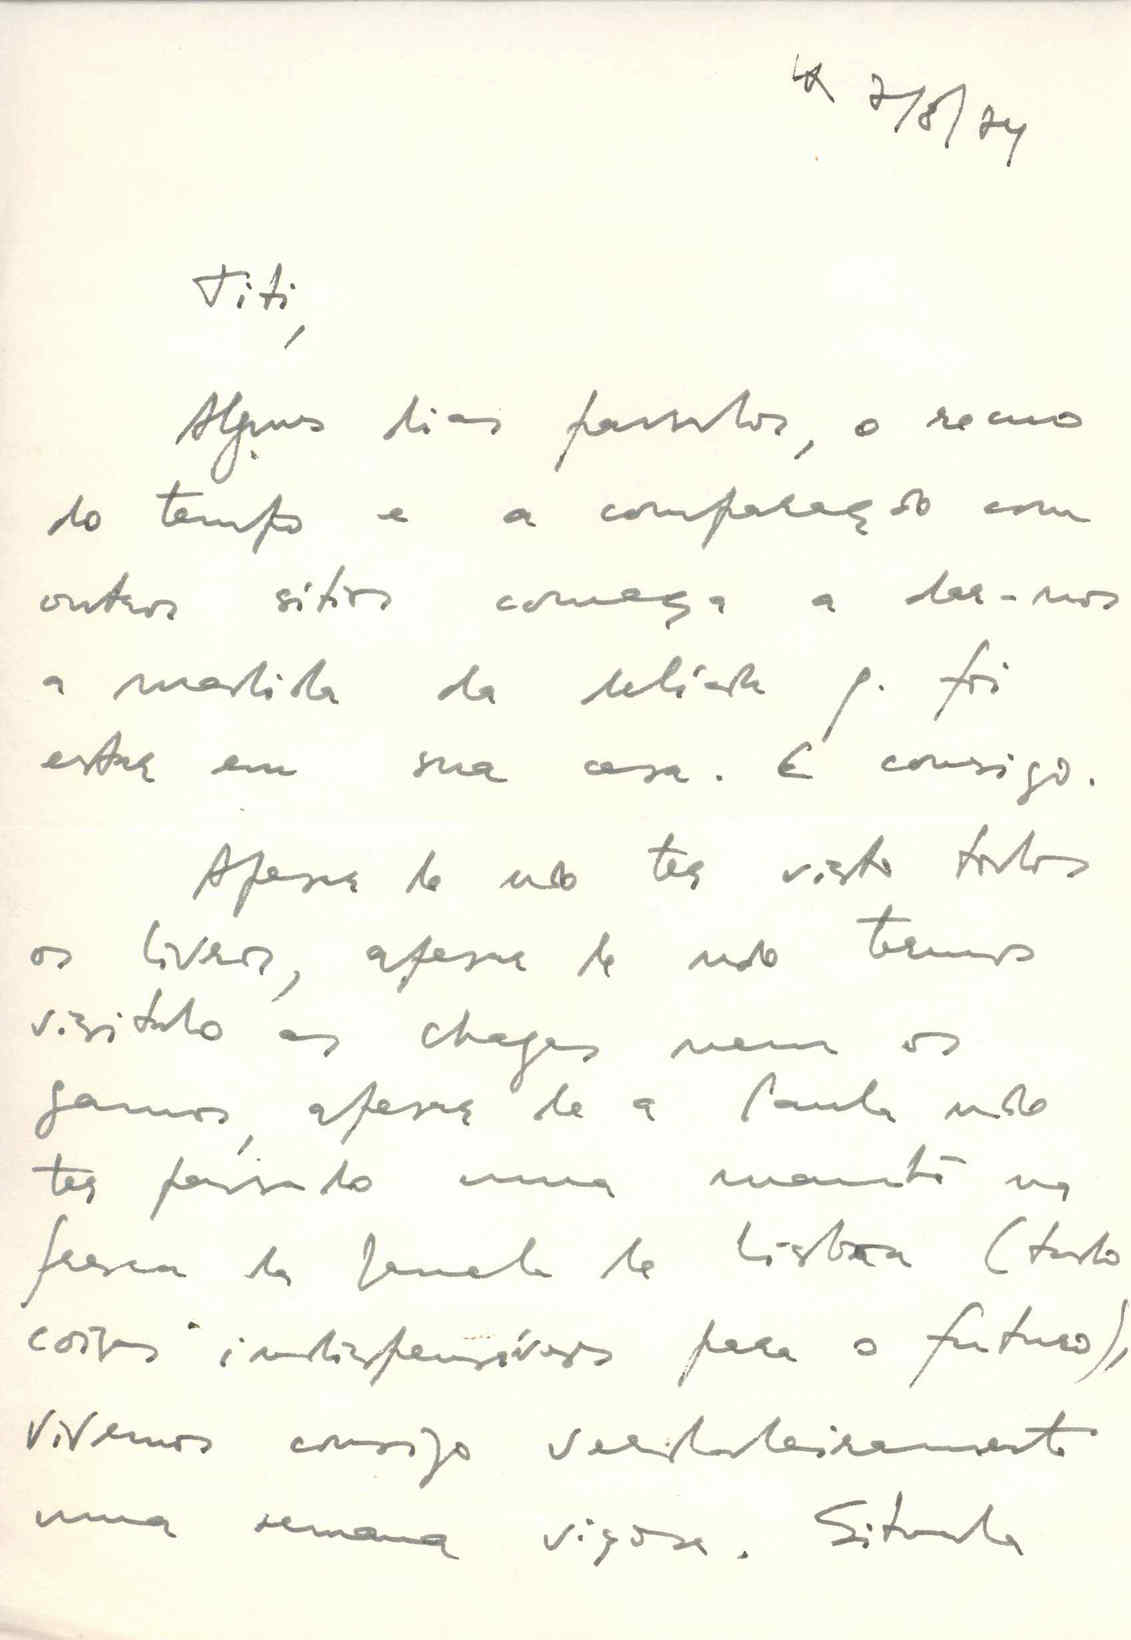 7/8/74
Titi,
Alguns dias passados, o recuo
do tempo e a comparação com
outros sítios começa a dar-nos
a medida da delícia q. foi
estar em sua casa. E consigo.
Apesar de não ter visto todos
os livros, apesar de não termos
visitado as Chagas nem os
gamos, apesar de a Paula não
ter passado uma manhã na
fresca da Janela de Lisboa (tudo
coisas indispensáveis para o futuro),
vivemos consigo verdadeiramente
uma semana vigosa. Situada